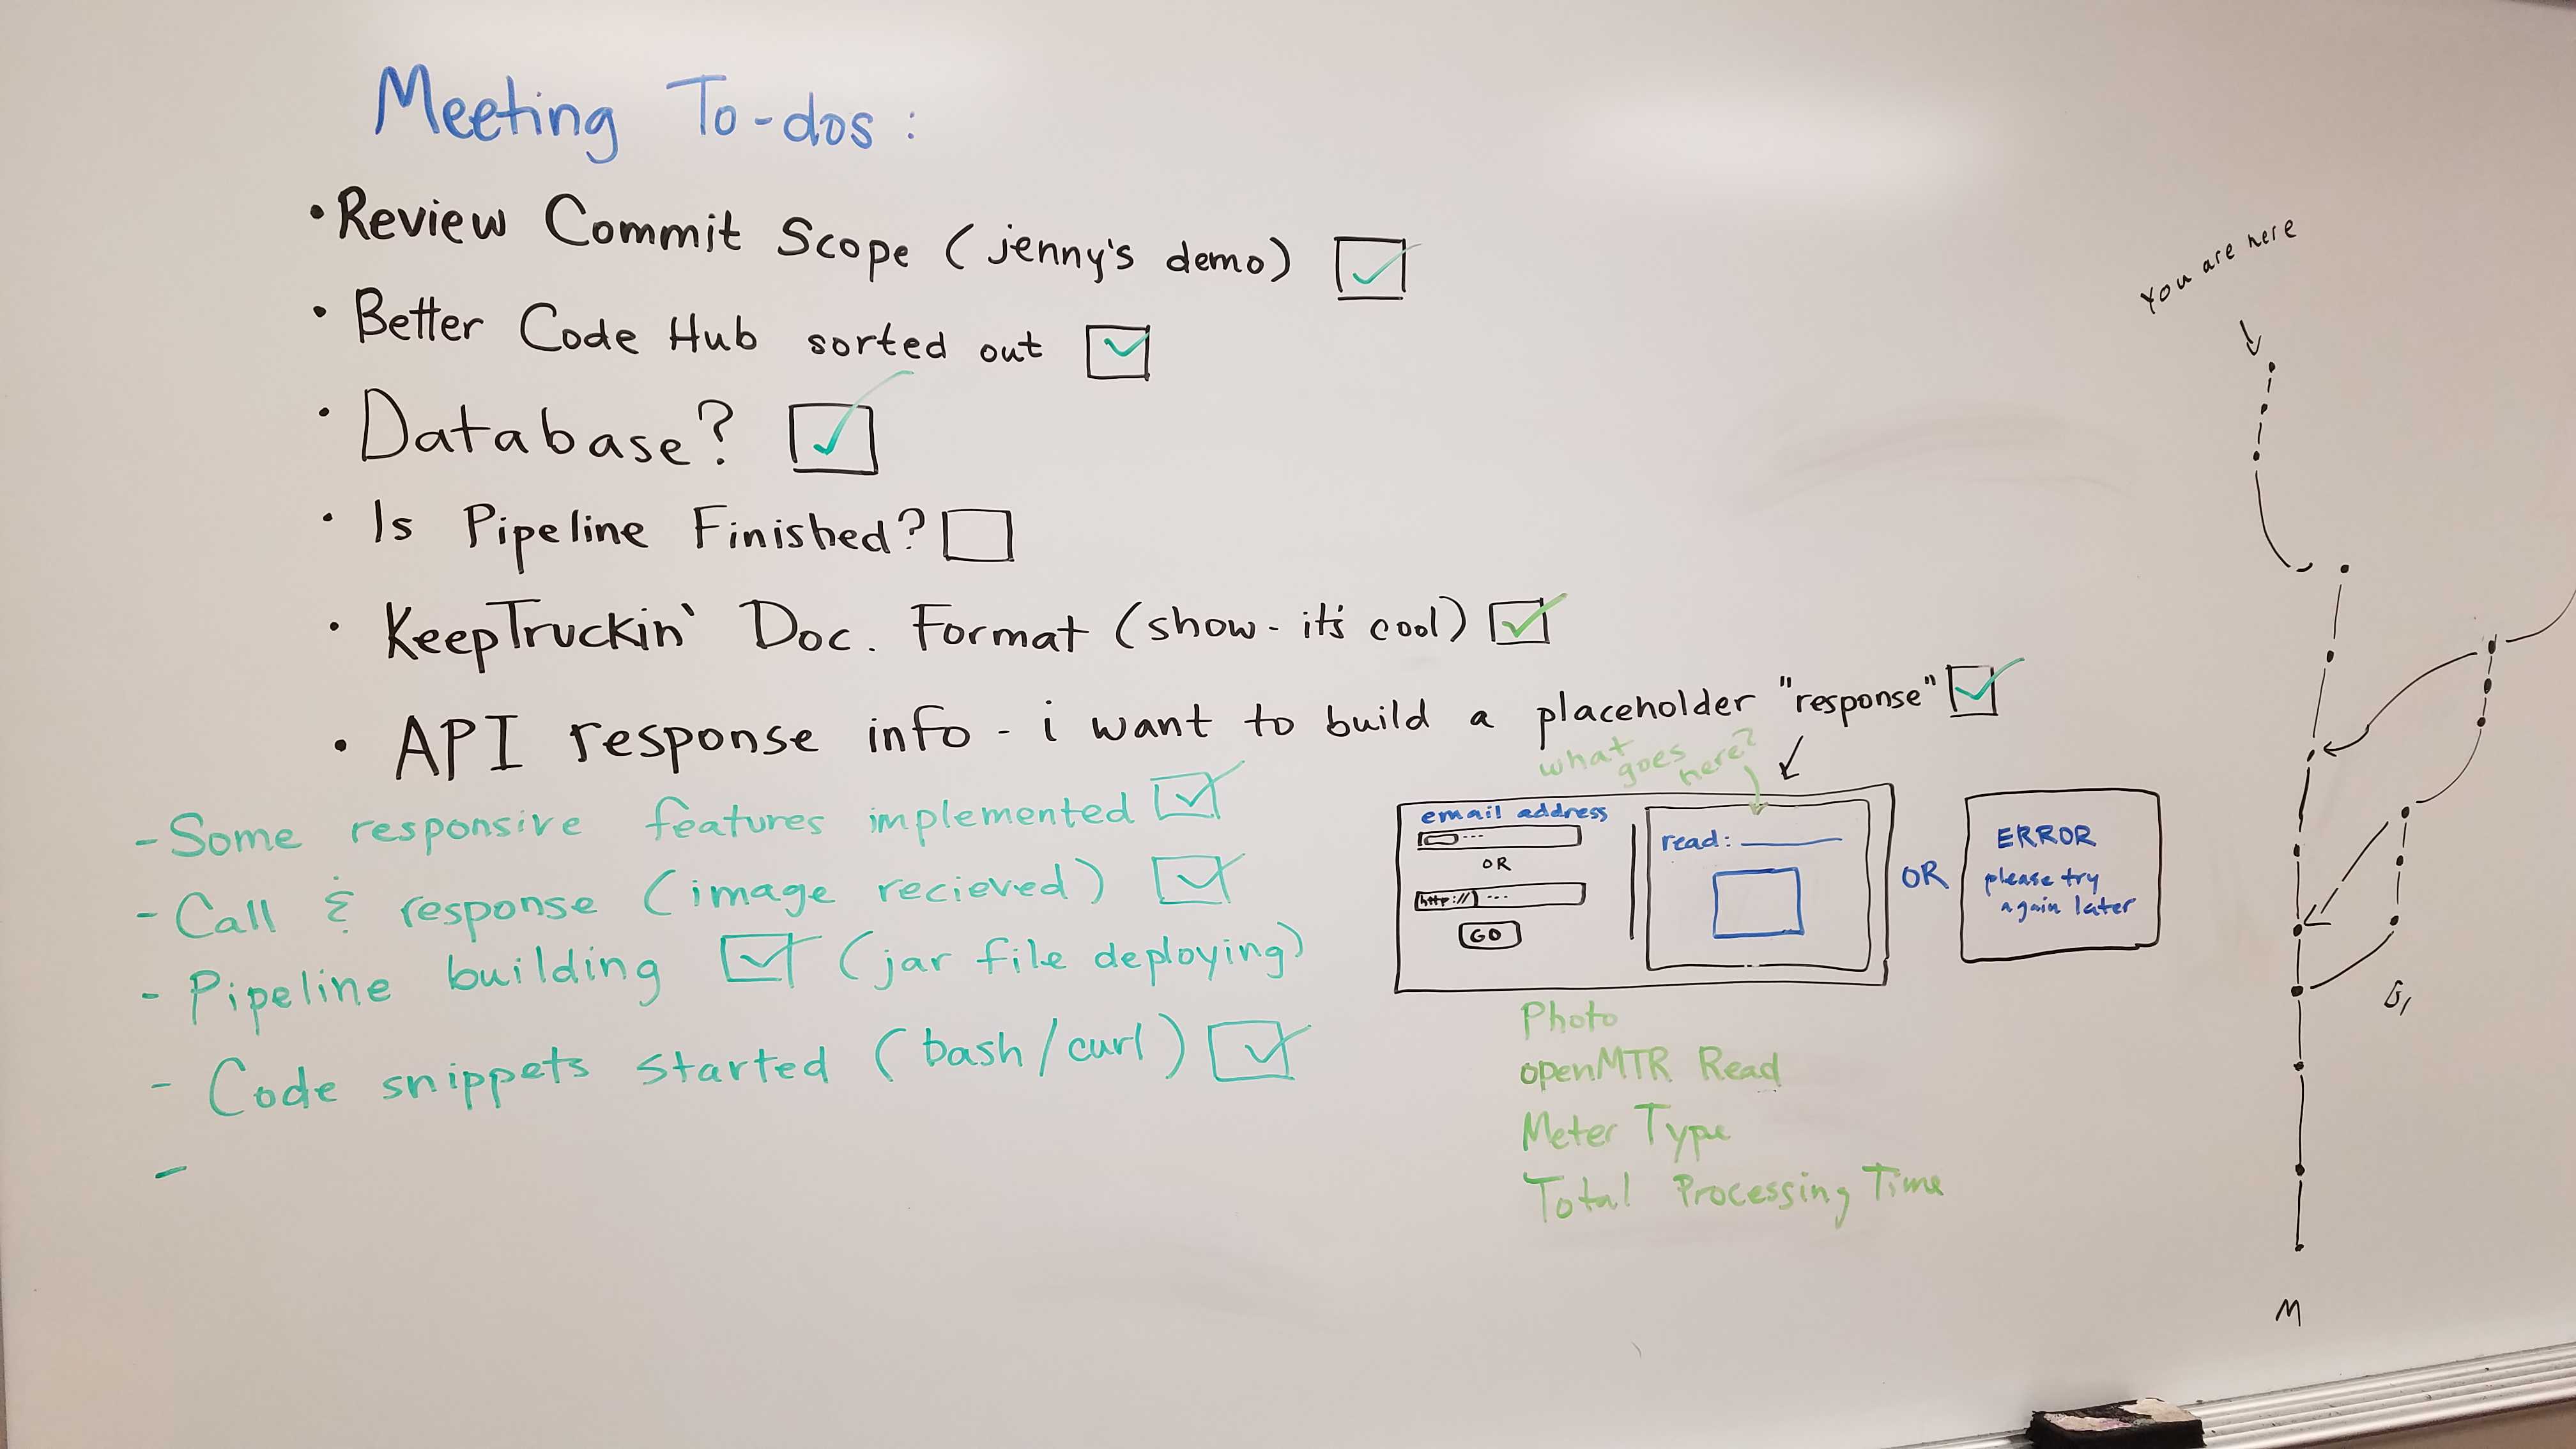 Meeting To-dos:
• Review Commit Scope (jenny's demo)
• Better Code Hub sorted out
• Database?
• Is Pipeline Finished?
• KeepTruckin' Doc. Format (show - it's cool)
• API response info - i want to build a placeholder "response"
- Some responsive features implemented
- Call & response (image recieved)
- Pipeline building (jar file deploying)
- Code snippets started (bash/curl)
-
what goes here?
email address
...
OR
http:// ...
GO
read:
OR
ERROR
please try
again later
Photo
openMTR Read
Meter Type
Total Processing Time
You are here
M